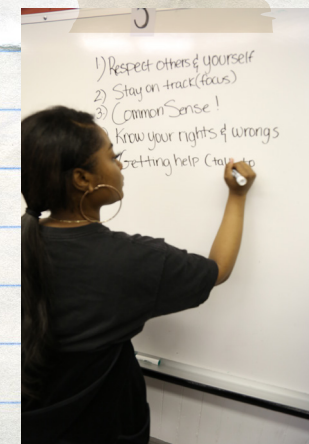 1) Respect others & yourself
2) Stay on track (focus)
3) Common Sense!
) Know your rights & wrongs
Getting help (talk to